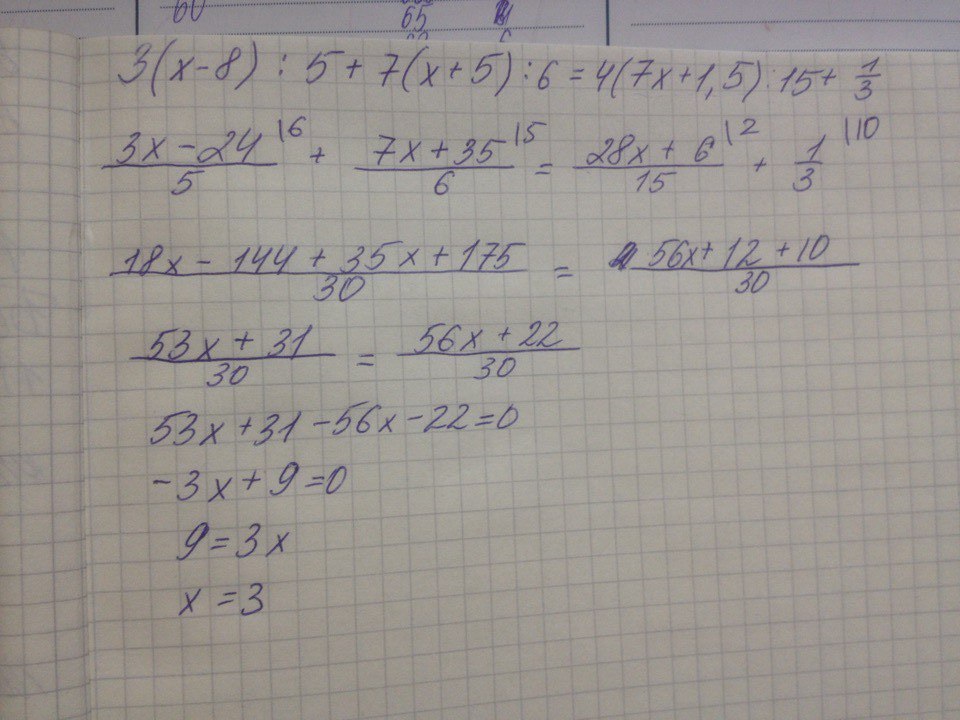 60 65
3(x-8) : 5 + 7(x+5) : 6 = 4(7x+1,5) : 15 + 1/3
(3x-24)/5 \6 + (7x+35)/6 \5 = (28x+6)/15 \2 + 1/3 \10
(18x-144+35x+175)/30 = (56x+12+10)/30
(53x+31)/30 = (56x+22)/30
53x+31-56x-22=0
-3x+9=0
9=3x
x=3